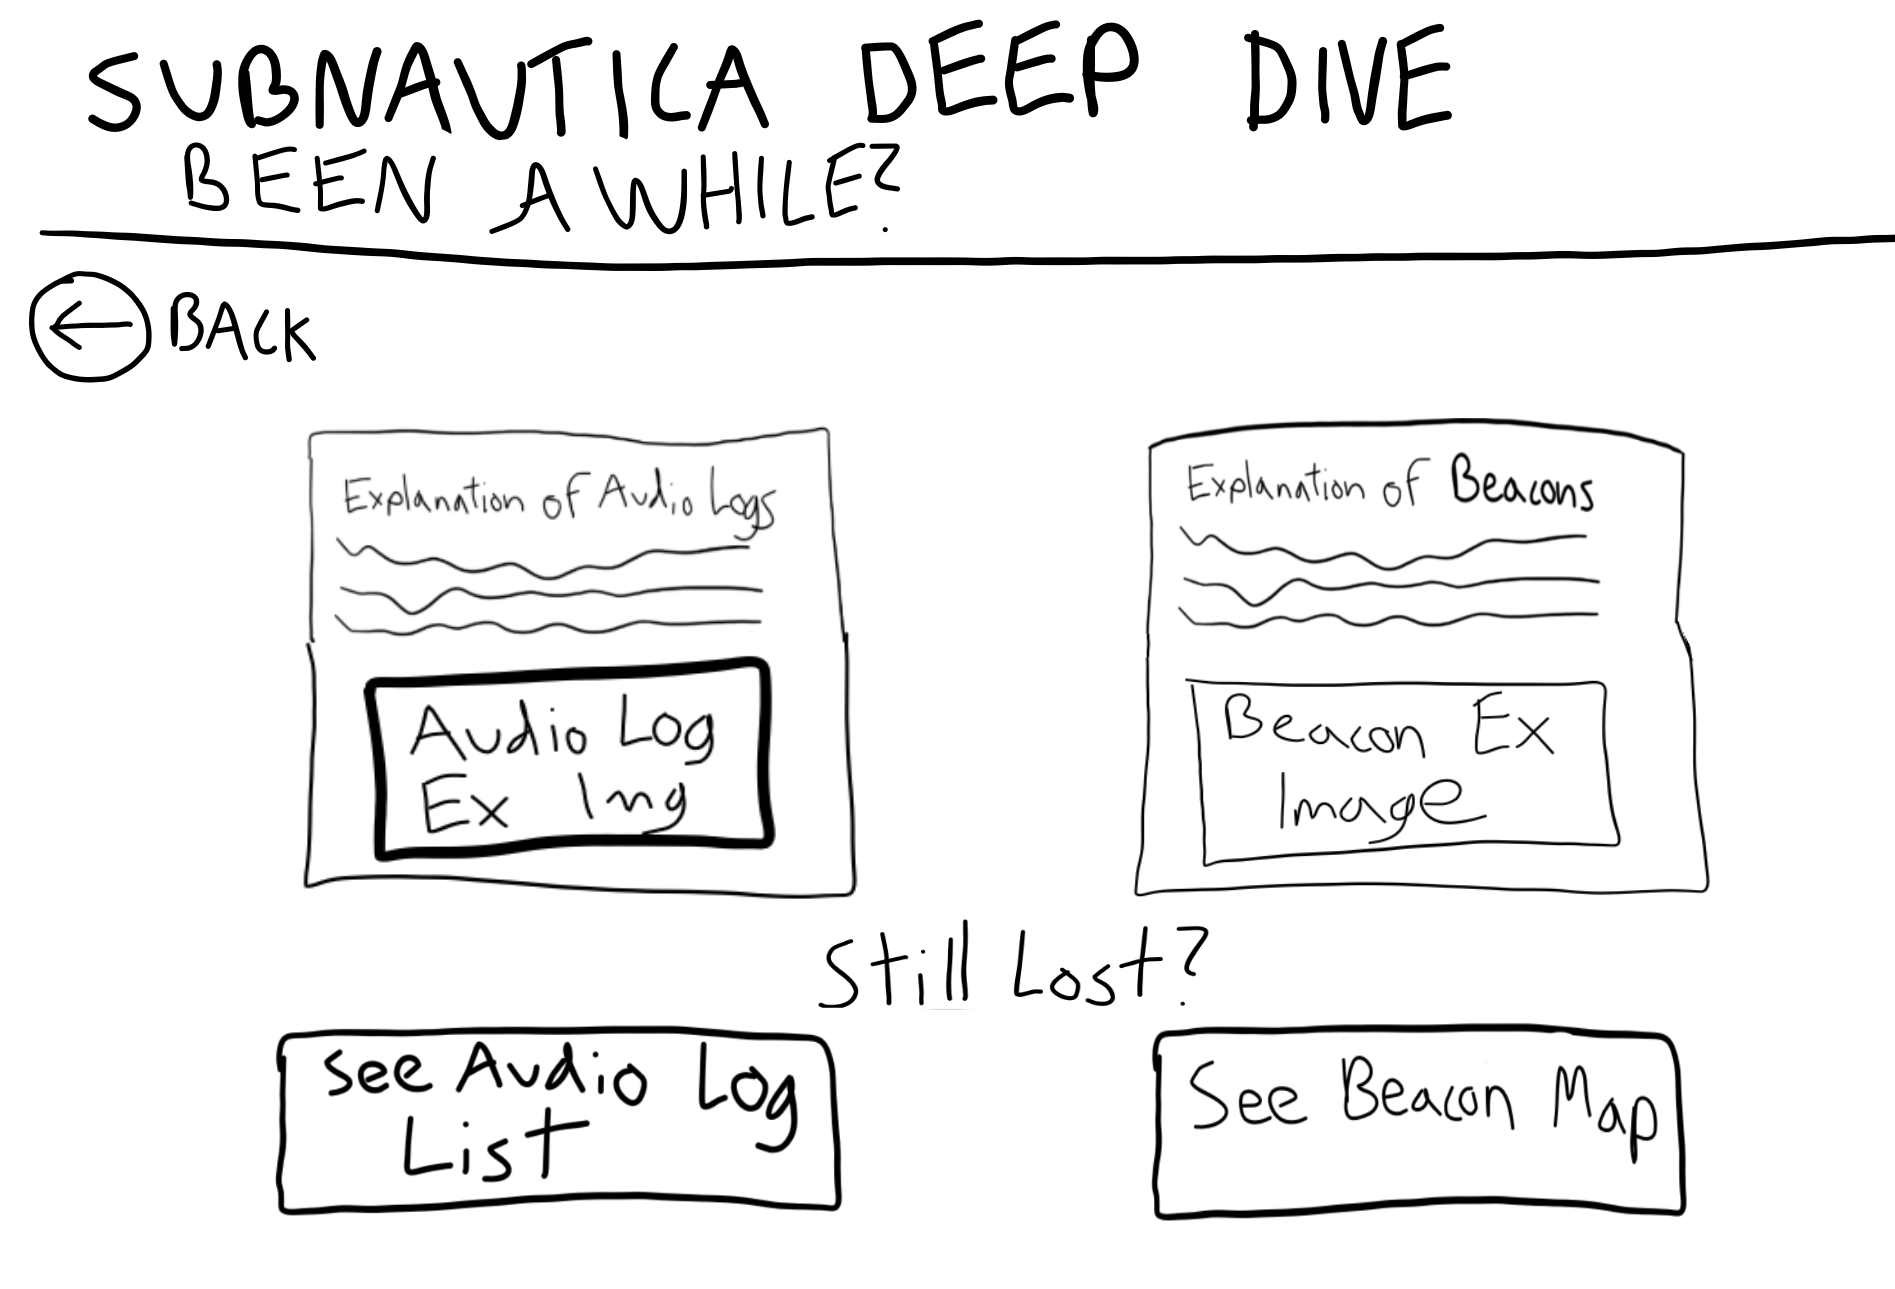 SUBNAUTICA DEEP DIVE
BEEN A WHILE?
BACK
Explanation of Audio Logs
Audio Log
Ex Img
Explanation of Beacons
Beacon Ex
Image
Still Lost?
See Audio Log
List
See Beacon Map